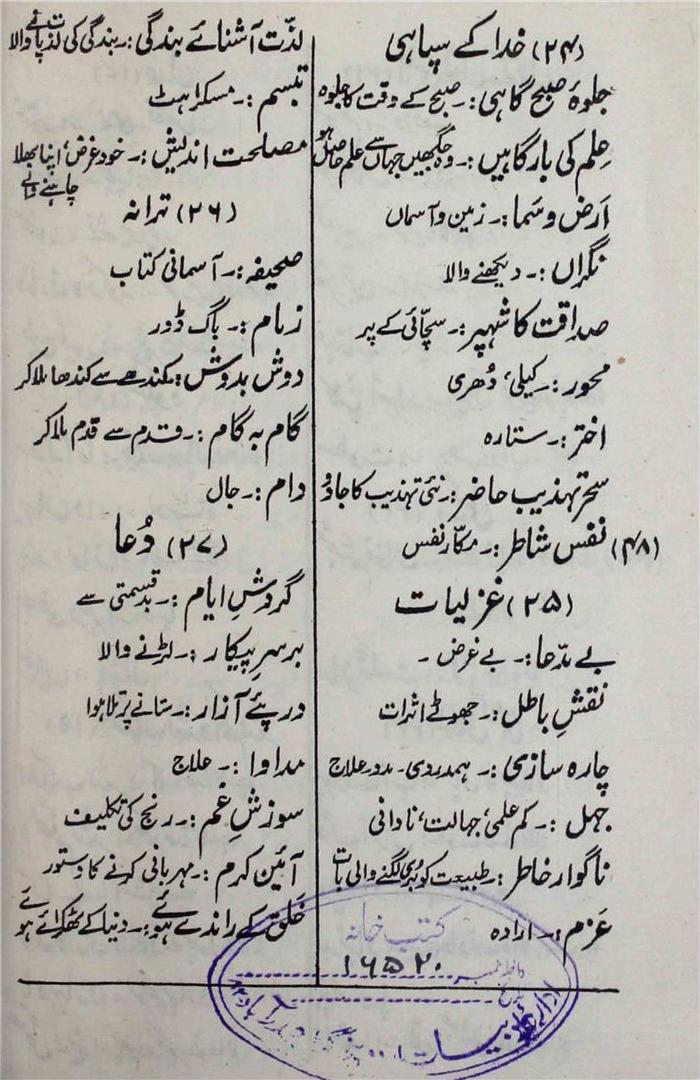 (۲۴) خدا کے سپاہی
جلوۂ صبح گاہی :۔ صبح کے وقت کا جلوہ
علم کی بارگاہیں :۔ وہ جگھیں جہاں سے علم حاصل ہو
ارض و سَما :۔ زمین و آسماں
نگراں :۔ دیکھنے والا
صداقت کا شہپر :۔ سچّائی کے پر
محور :۔ کیلی، دُھری
اختر :۔ ستارہ
سحرِ تہذیب حاضر :۔ نئی تہذیب کا جادو
(۴۸) نفس شاطر :۔ مکّار نفس
(۲۵) غزلیات
بے مدّعا :۔ بے غرض ۔
نقشِ باطل :۔ جھوٹے اثرات
چارہ سازی :۔ ہمدردی ۔ مدد علاج
جہل :۔ کم علمی، جہالت، نادانی
ناگوار خاطر :۔ طبیعت کو بُری لگنے والی بات
عَزم :۔ ارادہ
لذّت آشنائے بندگی :۔ بندگی کی لذت پانے والا
تبسم :۔ مسکراہٹ
مصلحت اندیش :۔ خود غرض، اپنا بھلا
چاہنے والے
(۲۶) ترانہ
صحیفہ :۔ آسمانی کتاب
زمام :۔ باگ ڈور
دوش بدوش :۔ کندھے سے کندھا ملا کر
گام بہ گام :۔ قدم سے قدم ملا کر
دام :۔ جال
(۲۷) دُعا
گردشِ ایام :۔ بدقسمتی سے
برسرِ پیکار :۔ لڑنے والا
درپئے آزار :۔ ستانے پر تلا ہوا
مداوا :۔ علاج
سوزشِ غم :۔ رنج کی تکلیف
آئین کرم :۔ مہربانی کرنے کا دستور
خَلق کے راندے ہوئے :۔ دنیا کے ٹھکرائے ہوئے
کتب خانہ
داخلہ نمبر ۱۶۵۲۰
تاریخ